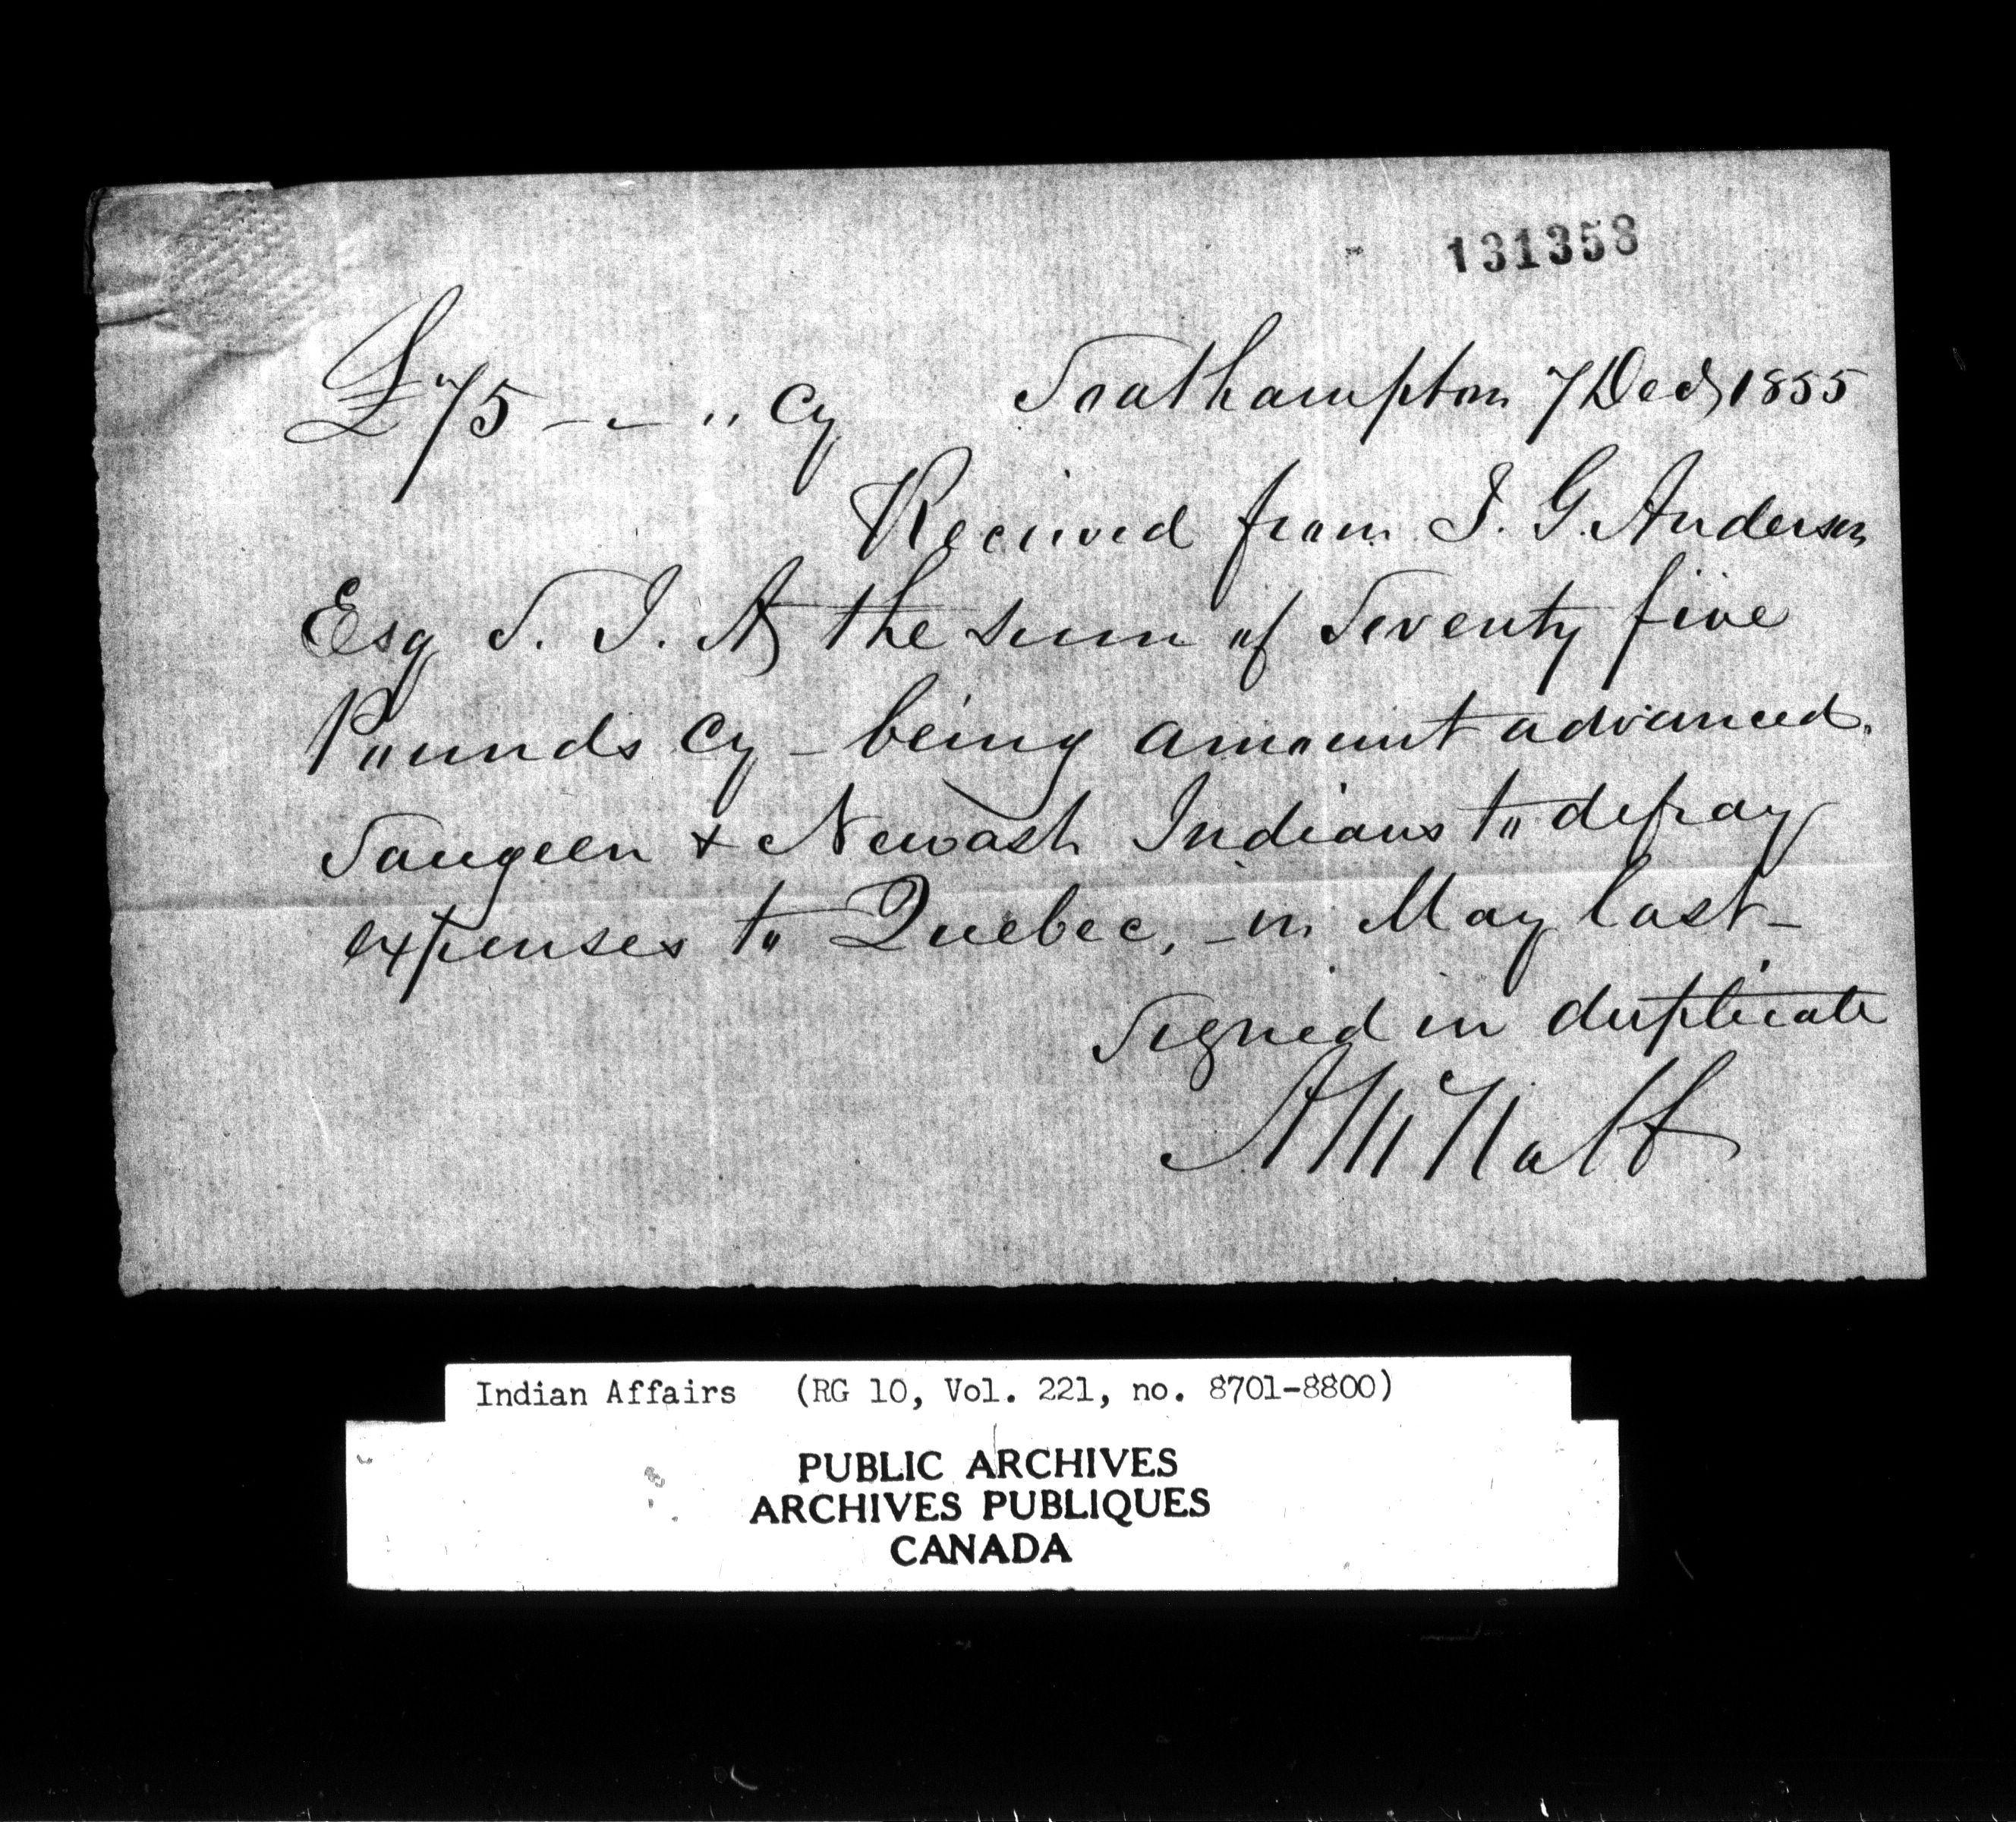 131358
£75 - - " Cy Southampton 7 Dec 1855
Received from T. G. Anderson
Esq S. I. A, the sum of Seventy five
Pounds Cy - being amount advanced.
Saugeen & Newash Indians to defray
expenses to Quebec, - in May last -
Signed in duplicate
A McNabb
Indian Affairs (RG 10, Vol. 221, no. 8701-8800)
PUBLIC ARCHIVES
ARCHIVES PUBLIQUES
CANADA